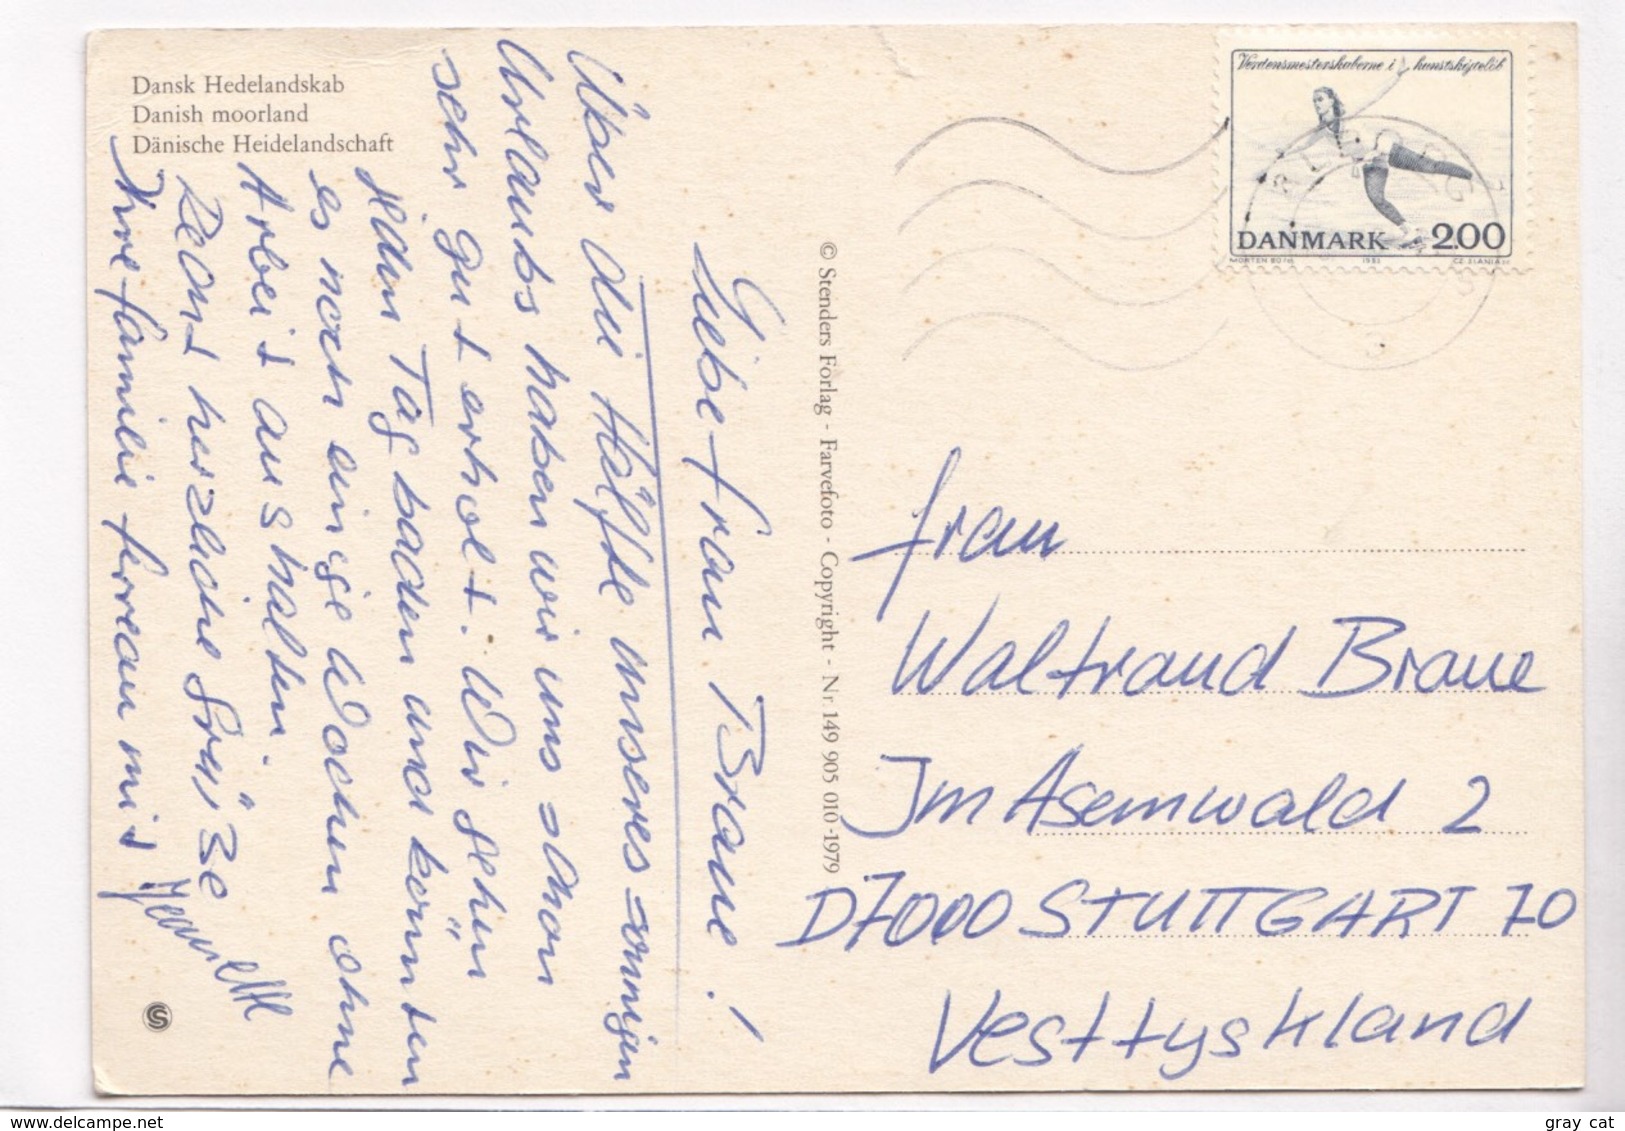 Dansk Hedelandskab
Danish moorland
Dänische Heidelandschaft
Liebe Frau Braue!
Über die Hälfte unseres sonnigen
Urlaubs haben wir uns schon
sehr gut erholt. Wir gehen
jeden Tag baden und könnten
es noch einige Wochen ohne
Arbeit aushalten.
Recht herzliche Grüße
Ihre Familie mit
© Stenders Forlag - Farvefoto - Copyright - Nr 149 905 010 - 1979
Verdensmesterskaberne i kunstskøjteløb
DANMARK 2.00
1982
CZ. SLANIA sc
Frau
Waltraud Braue
Im Asemwald 2
D7000 STUTTGART 70
Vesttyskland
gray cat